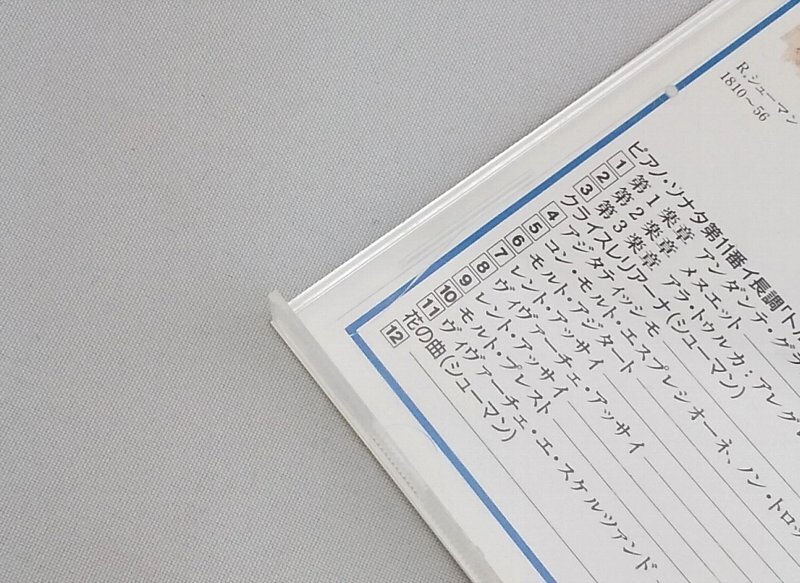 R.シューマン
1810～56
ピアノ・ソナタ第11番イ長調「トル
1 第1楽章 アンダンテ・グラ
2 第2楽章 メヌエット
3 第3楽章 アラ・トゥルカ：アレグレ
クライスレリアーナ(シューマン)
4 アジタティッシモ
5 コン・モルト・エスプレシオーネ、ノン・トロッ
6 モルト・アジタート
7 レント・アッサイ
8 ヴィヴァーチェ・アッサイ
9 レント・アッサイ
10 モルト・プレスト
11 ヴィヴァーチェ・エ・スケルツァンド
花の曲(シューマン)
12